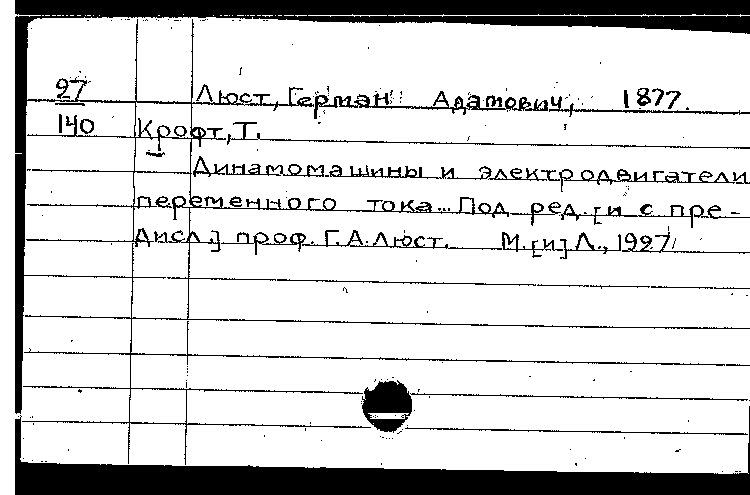 27 Люст, Герман Адамович, 1877.
140 Крофт, Т.
Динамомашины и электродвигатели
переменного тока... Под ред. [и с пре-
дисл.] проф. Г. А. Люст. М. [и] Л., 1927